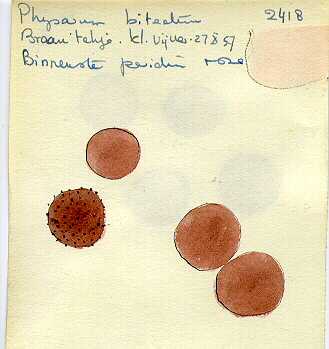 Physarum bitectum 2418
Braam'takje. kl. vijver. 27 8 57
Binnenste peridie rose